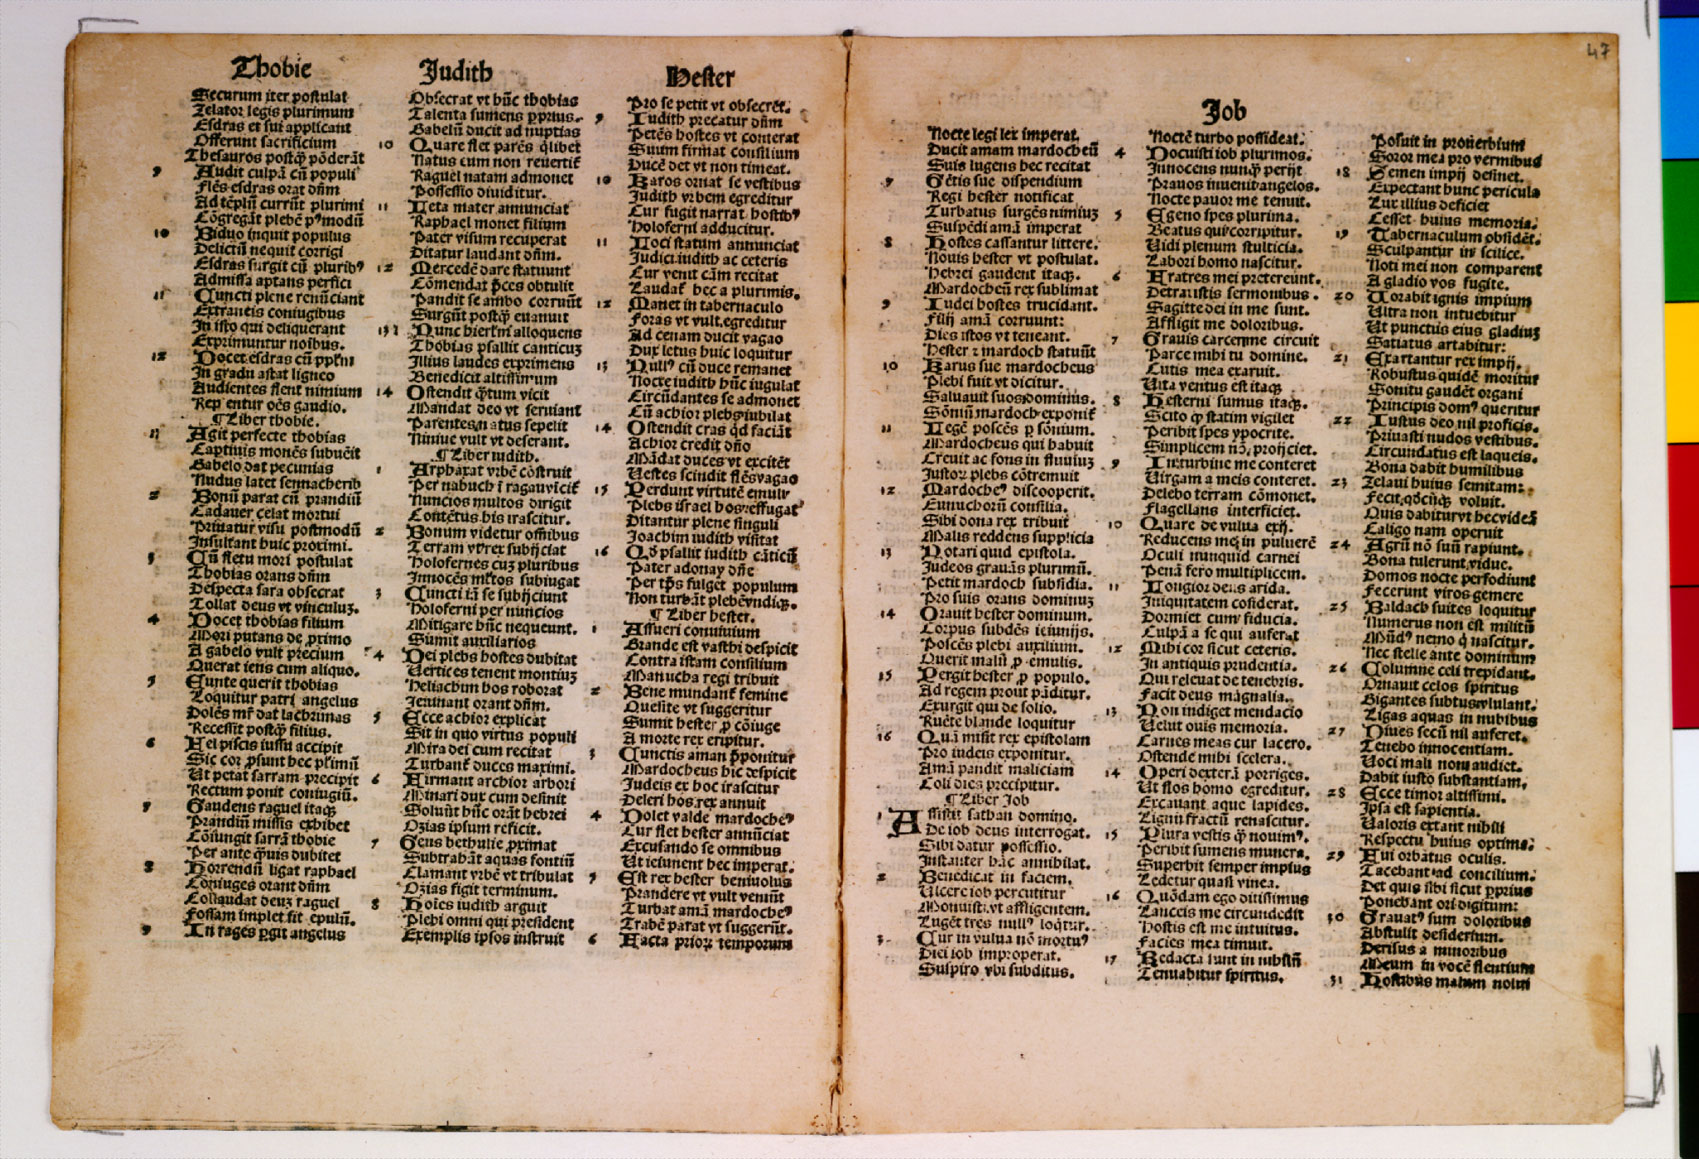 47
Thobie
Securum iter postulat
Zelator legis plurimum
Esdras et sui applicant
Offerunt sacrificium
Thesauros postqȝ põderãt
9 Audit culpã cũ populi
Flẽs esdras orat dñm
Ad tẽplũ currũt plurimi
Cõgregãt plebẽ pꝰmodũ
10 Biduo inquit populus
Delictũ nequit corrigi
Esdras surgit cũ pluribꝰ
Admissa aptans perfici
11 Cuncti plene renũciant
Extraneis coniugibus
In isto qui deliquerant
Exprimuntur noibus.
12 Docet esdras cũ
In gradu astat ligneo
Audientes flent nimium
entur oẽs gaudio.
¶ Liber thobie.
Agit perfecte thobias
Captiuis monẽs subuẽit
Gabelo dat pecunias
Nudus latet sennacherib
2 Bonũ parat cũ prandiũ
Cadauer celat mortui
Priuatur visu postmodũ
Insultant huic proximi.
3 Cũ fletu mori postulat
Thobias orans dñm
Despecta sara obsecrat
Tollat deus vt vinculuȝ.
4 Docet thobias filium
Mori putans de ꝓximo
A gabelo vult precium
Querat iens cum aliquo.
5 Eunte querit thobias
Loquitur patri angelus
Dolẽs mr̃ dat lachrimas
Recessit postqȝ filius.
6 Fel piscis iussu accipit
Sic cor ꝓsunt hec
Ut petat sarram precipit
Rectum ponit coniugiũ.
7 Gaudens raguel itaqȝ
Prandiũ missis exhibet
Cõiungit sarrã thobie
Per ante qȝuis dubitet
8 Horrendũ ligat raphael
Coniuges orant dñm
Collaudat deuȝ raguel
Fossam implet fit epulũ.
9 In rages ꝑgit angelus
Judith
Obsecrat vt hũc thobias
Talenta sumens ꝓprius.
Gabelũ ducit ad nuptias
10 Quare flet parẽs qͥlibet
Natus cum non reuertit̃
Raguel natam admonet
Possessio diuiditur.
11 Leta mater annunciat
Raphael monet filium
Pater visum recuperat
Ditatur laudant dñm.
12 Mercedẽ dare statuunt
Cõmendat p̃ces obtulit
Pandit se ambo corruũt
Surgũt postqȝ euanuit
13 Nunc hierl̃m alloquens
Thobias psallit canticuȝ
Illius laudes exprimens
Benedicit altissimum
14 Ostendit qȝtum vicit
Mandat deo vt seruiant
Parentes natus sepelit
Niniue vult vt deserant.
¶ Liber iudith.
1 Arphaxat vrbẽ cõstruit
Per nabuch ĩ ragau vĩcit̃
Nuncios multos dirigit
Contẽtus his irascitur.
2 Bonum videtur omnibus
Terram vt rex subijciat
Holofernes cuȝ pluribus
Innocẽs ml̃tos subiugat
3 Cuncti iã se subijciunt
Holoferni per nuncios
Mitigare hũc nequeunt.
Sumit auxiliarios
4 Dei plebs hostes dubitat
Vertices tenent montiuȝ
Heliachim hos roborat
Ieiunant orant dñm.
5 Ecce achior explicat
Sit in quo virtus populi
Mira dei cum recitat
Turbant̃ duces maximi.
6 Firmant archior arbori
Minari dux cum definit
Soluũt hũc orãt hebrei
Ozias ipsum reficit.
7 Geus bethulie ꝓximat
Subtrahãt aquas fontiũ
Clamant vrbẽ vt tribulat
Ozias figit terminum.
8 Hoĩes iudith arguit
Plebi omni qui president
Exemplis ipsos instruit
Hester
Pro se petit vt obsecrẽt.
9 Iudith precatur dñm
Petẽs hostes vt conterat
Suum firmat consilium
Ducẽ det vt non timeat.
10 Karos ornat se vestibus
Judith vrbem egreditur
Cur fugit narrat hostibꝰ
Holoferni adducitur.
11 Loci statum annunciat
Judici iudith ac ceteris
Cur venit cãm recitat
Laudat̃ hec a plurimis.
12 Manet in tabernaculo
Foras vt vult egreditur
Ad cenam ducit vagao
Dux letus huic loquitur
13 Nullꝰ cũ duce remanet
Nocte iudith hũc iugulat
Circũdantes se admonet
Cũ achior plebs iubilat
14 Ostendit cras qd̃ faciãt
Achior credit dño
Mãdat duces vt excitẽt
Uestes scindit flẽs vagao
15 Perdunt virtutẽ emuli
Plebs israel hos effugat
Ditantur plene singuli
Joachim iudith visitat
16 Qd̃ psallit iudith cãticũ
Pater adonay dñe
Per tp̃s fulget populum
Non turbãt plebẽ vndiqȝ.
¶ Liber hester.
1 Assueri conuiuium
Grande est vasthi despicit
Contra istam consilium
Manucha regi tribuit
2 Bene mundant̃ femine
Quesite vt suggeritur
Sumit hester ꝓ cõiuge
A morte rex eripitur.
3 Cunctis aman p̃ponitur
Mardocheus hic despicit
Judeis ex hoc irascitur
Deleri hos rex annuit
4 Dolet valde mardocheꝰ
Cur flet hester annũciat
Excusando se omnibus
Ut ieiunent hec imperat.
5 Est rex hester beniuolus
Prandere vt vult veniũt
Turbat amã mardocheꝰ
Trabẽ parat vt suggerũt.
6 Facta prioꝝ temporum
Job
Nocte legi lex imperat.
Ducit amam mardocheũ
Suis lugens hec recitat
7 Gẽtis sue dispendium
Regi hester notificat
Turbatus surgẽs nimiuȝ
Suspẽdi amã imperat
8 Hostes cassantur littere.
Nouis hester vt postulat.
Hebrei gaudent itaqȝ.
Mardocheũ rex sublimat
9 Iudei hostes trucidant.
Filij amã corruunt:
Dies istos vt teneant.
Hester ⁊ mardoch statuũt
10 Karus sue mardocheus
Plebi fuit vt dicitur.
Saluauit suos dominus.
Sõniũ mardoch exponit̃
11 Legẽ poscẽs ꝑ sõnium.
Mardocheus qui habuit
Creuit ac fons in fluuiuȝ
Justoꝝ plebs cõtremuit
12 Mardocheꝰ discooperit.
Eunuchorũ consilia.
Sibi dona rex tribuit
Malis reddens supplicia
13 Notari quid epistola.
Judeos grauãs plurimũ.
Petit mardoch subsidia.
Pro suis orans dominuȝ
14 Orauit hester dominum.
Corpus subdẽs ieiunijs.
Poscẽs plebi auxilium.
Querit malũ ꝓ emulis.
15 Pergit hester ꝓ populo.
Ad regem prout pãditur.
Exurgit qui de solio.
Ruẽte blande loquitur
16 Quã misit rex epistolam
Pro iudeis exponitur.
Amã pandit maliciam
Coli dies precipitur.
¶ Liber Job
1 Assistit sathan domino.
De iob deus interrogat.
Sibi datur possessio.
Instanter hãc annihilat.
2 Benedicat in faciem.
Ulcere iob percutitur
Monuisti vt affligentem.
Lugẽt tres nullꝰ loqͥtur.
3 Cur in vulua nõ mortuꝰ
Diei iob improperat.
Suspiro vbi subditus.
Noctẽ turbo possideat.
4 Docuisti iob plurimos.
Innocens nunqȝ perijt
Prauos inueni angelos.
Nocte pauor me tenuit.
5 Egeno spes plurima.
Beatus qui corripitur.
Uidi plenum stulticia.
Labori homo nascitur.
6 Fratres mei preterеunt.
Detraxistis sermonibus.
Sagitte dei in me sunt.
Affligit me doloribus.
7 Grauis carcer me circuit
Parce mihi tu domine.
Cutis mea exaruit.
Uita ventus est itaqȝ
8 Hesterni sumus itaqȝ.
Scito qȝ statim vigilet
Peribit spes ypocrite.
Simplicem nõ proijciet.
9 In turbine me conteret
Uirgam a meis conteret.
Delebo terram cõmonet.
Flagellans interficiet.
10 Quare de vulua exij.
Reducens me in puluerẽ
Oculi nunquid carnei
Penã fero multiplicem.
11 Longior deus arida.
Iniquitatem cõsiderat.
Dormiet cum fiducia.
Culpã a se qui auferat
12 Mihi cor sicut ceteris.
In antiquis prudentia.
Qui releuat de tenebris.
Facit deus magnalia.
13 Non indiget mendacio
Uelut ouis memoria.
Carnes meas cur lacero.
Ostende mihi scelera.
14 Operi dexterã porriges.
Ut flos homo egreditur.
Excauant aque lapides.
Ligni fractũ renascitur.
15 Plura vestis qȝ nouimꝰ.
Peribit sumens munera.
Superbit semper impius
Ledetur quasi vinea.
16 Quõdam ego ditissimus
Lanceis me circundedit
Hostis est me intuitus.
Facies mea timuit.
17 Redacta sunt in nihilũ
Tenuabitur spiritus.
Posuit in prouerbium
Soror mea pro vermibus
18 Semen impij desinet.
Expectant hunc pericula
Lux illius deficiet
Cesset huius memoria.
19 Tabernaculum obsidẽt.
Sculpantur in scilice.
Noti mei non comparent
A gladio vos fugite.
20 Uorabit ignis impium
Ultra non intuebitur
Ut punctus eius gladiuȝ
Satiatus artabitur:
21 Exartantur rex impij.
Robustus quidẽ moritur
Sonitu gaudẽt organi
Principis domꝰ queritur
22 Iustus deo nil proficis.
Priuasti nudos vestibus.
Circundatus est laqueis.
Bona dabit humilibus
23 Zelaui huius semitam:
Fecit qd̃cũqȝ voluit.
Quis dabit vt hec videã
Caligo nam operuit
24 Agrũ nõ suũ rapiunt.
Bona tulerunt vidue.
Domos nocte perfodiunt
Fecerunt viros gemere
25 Baldach suites loquitur
Numerus non est militũ
Mũdꝰ nemo qͥ nascitur.
Nec stelle ante dominum
26 Columne celi trepidant.
Ornauit celos spiritus
Gigantes subtus vlulant.
Ligas aquas in nubibus
27 Diues secũ nil auferet.
Tenebo innocentiam.
Uoci mali non audiet.
Dabit iusto substantiam.
28 Ecce timor altissimi.
Ipsa est sapientia.
Ualoris extant nihili
Respectu huius optima:
29 Fui orbatus oculis.
Tacebant ad concilium.
Det quis sibi sicut ꝓprius
Ponebant ori digitum:
30 Grauatꝰ sum doloribus
Abstulit desiderium.
Derisus a minoribus
Meum in vocẽ flentium
31 Hostibus malum nolui